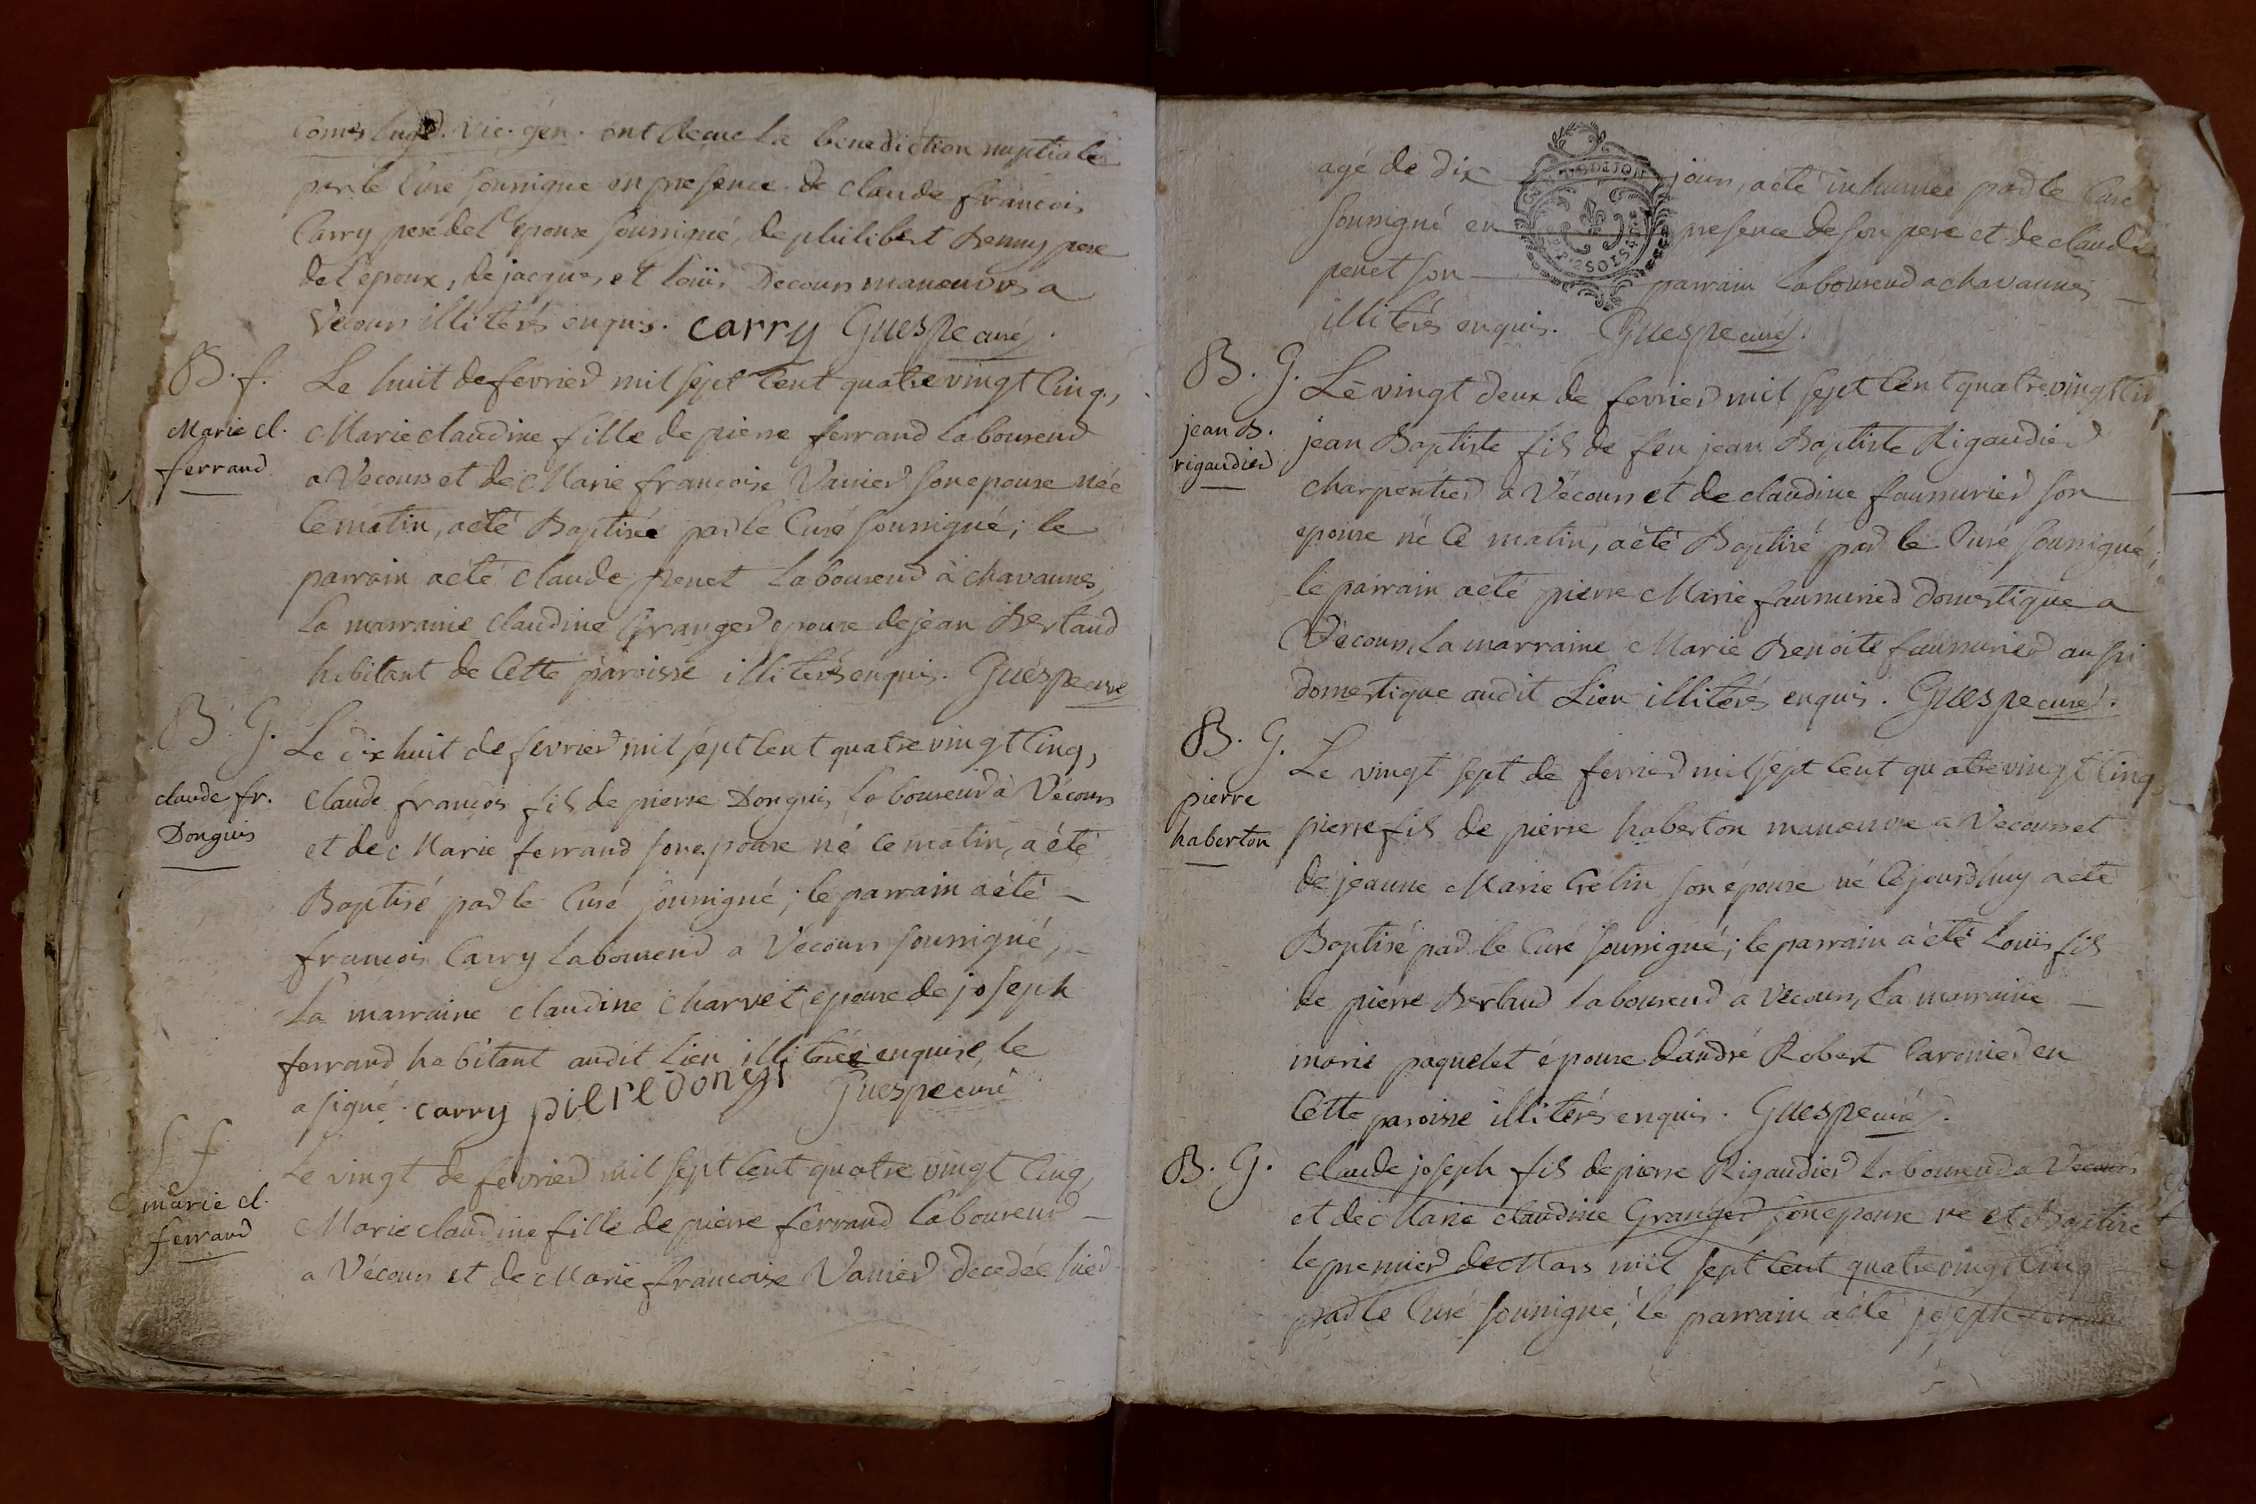 vic. gén. ont Recue la benediction nuptiale
par le Curé soussigné en presence de claude francois
Carry pere de l'épouse soussigné, de philibert Remy pere
de l'époux, de jacques et louis Decours manoeuvres a
Vécours illiterés enquis. carry Guespe curé.
B. f.
Marie cl.
ferrand
Le huit de fevrier mil sept cent quatre vingt Cinq,
Marie claudine fille de pierre ferrand laboureur
a Vecours et de Marie francoise Vanier son epouse née
Ce matin, a été Baptisée par le Curé soussigné; le
parrain a été claude penet laboureur à chavannes,
la marraine claudine Granger epouse de jean Bertaud
habitant de Cette paroisse illiterés enquis. Guespe curé
B. G.
claude fr.
Donguis
Le dix huit de fevrier mil sept Cent quatre vingt Cinq,
claude françois fils de pierre Donguis laboureur à Vécours
et de Marie ferrand son epouse né ce matin, a été
Baptisé par le Curé soussigné; le parrain a été
francois Carry laboureur a Vécours soussigné,
la marraine claudine charvet epouse de joseph
ferrand habitant audit Lieu illiterée enquise, le
a signé. carry pieredongi Guespe curé
S. f.
marie cl.
ferrand
Le vingt de fevrier mil sept Cent quatre vingt Cinq,
Marie claudine fille de pierre ferrand laboureur
a Vécours et de Marie francoise Vanier decedée hier
agé de dix jours, a été inhumée par le Curé
soussigné en presence de son pere et de claude
penet son parrain laboureur a chavannes
illiterés enquis. Guespe curé.
B. G.
jean B.
rigaudier
Le vingt deux de fevrier mil sept Cent quatre vingt
jean Baptiste fils de feu jean Baptiste Rigaudier
charpentier a Vécours et de claudine faumurier son
epouse né Ce matin, a été Baptisé par le Curé soussigné;
le parrain a été pierre Marie faumurier domestique a
Vécours, la marraine Marie Benoite faumurier aussi
domestique audit Lieu illiterés enquis. Guespe curé.
B. G.
pierre
haberton
Le vingt sept de fevrier mil sept Cent quatre vingt Cinq
pierre fils de pierre haberton manoeuvre a Vecours et
de jeanne Marie Cretin son épouse né Cejourdhuy a été
Baptisé par le Curé soussigné; le parrain a été louis fils
de pierre Bertaud laboureur a Vécours, la marraine
marie paquelet épouse d'andré Robert en
Cette paroisse illiterés enquis. Guespe curé.
B. G.
claude joseph fils de pierre Rigaudier laboureur a Vecours
et de Marie claudine Granger son epouse né et Baptisé
le premier de Mars mil sept Cent quatre vingt Cinq
par le Curé soussigné; le parrain a été joseph ferrand